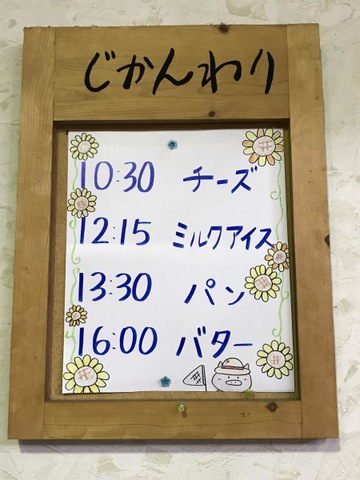 じかんわり
10:30 チーズ
12:15 ミルクアイス
13:30 パン
16:00 バター